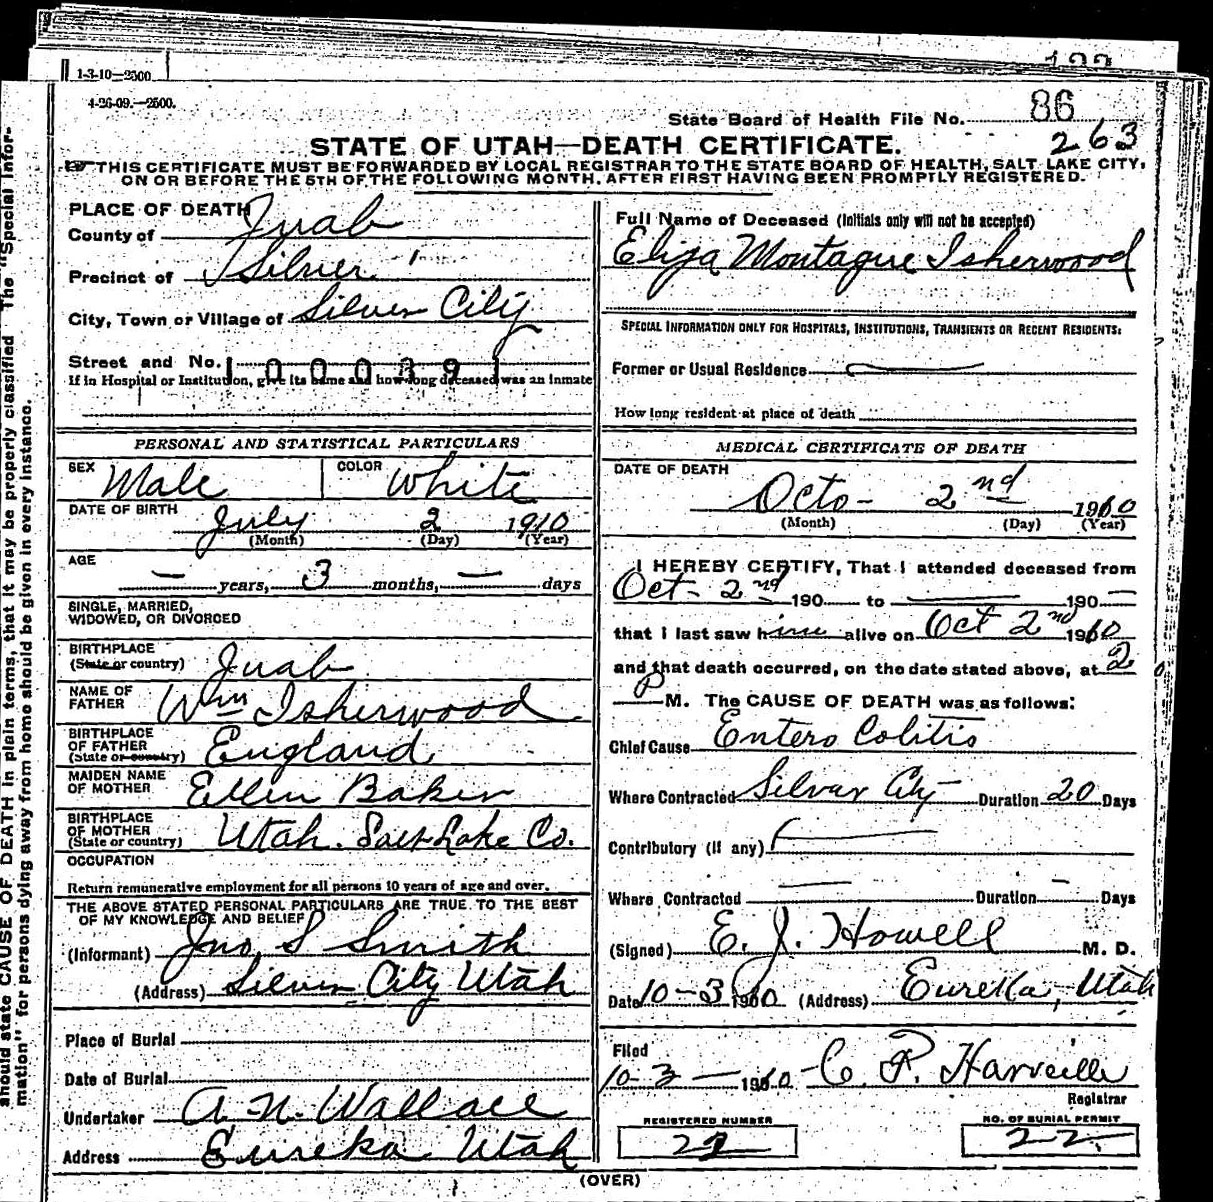 1-3-10—2500
4-26-09.—2500.
State Board of Health File No. 86
263
STATE OF UTAH—DEATH CERTIFICATE.
THIS CERTIFICATE MUST BE FORWARDED BY LOCAL REGISTRAR TO THE STATE BOARD OF HEALTH, SALT LAKE CITY,
ON OR BEFORE THE 5TH OF THE FOLLOWING MONTH, AFTER FIRST HAVING BEEN PROMPTLY REGISTERED.
PLACE OF DEATH
County of Juab
Precinct of Silver
City, Town or Village of Silver City
Street and No.
1000391
If in Hospital or Institution, give its name and how long deceased was an inmate
PERSONAL AND STATISTICAL PARTICULARS
SEX Male COLOR White
DATE OF BIRTH July 2 1910
(Month) (Day) (Year)
AGE — years, 3 months, — days
SINGLE, MARRIED,
WIDOWED, OR DIVORCED
BIRTHPLACE
(State or country) Juab
NAME OF
FATHER Wm Isherwood
BIRTHPLACE
OF FATHER
(State or country) England
MAIDEN NAME
OF MOTHER Ellen Baker
BIRTHPLACE
OF MOTHER
(State or country) Utah. Salt Lake Co.
OCCUPATION
Return remunerative employment for all persons 10 years of age and over.
THE ABOVE STATED PERSONAL PARTICULARS ARE TRUE TO THE BEST
OF MY KNOWLEDGE AND BELIEF
(Informant) Jno S Smith
(Address) Silver City Utah
Place of Burial
Date of Burial
Undertaker A. N. Wallace
Address Eureka Utah
Full Name of Deceased (Initials only will not be accepted)
Eliza Montague Isherwood
SPECIAL INFORMATION ONLY FOR HOSPITALS, INSTITUTIONS, TRANSIENTS OR RECENT RESIDENTS:
Former or Usual Residence
How long resident at place of death
MEDICAL CERTIFICATE OF DEATH
DATE OF DEATH
Octo- 2nd 1910
(Month) (Day) (Year)
I HEREBY CERTIFY, That I attended deceased from
Oct- 2nd 190 to — 190 —
that I last saw him alive on Oct 2nd 1910
and that death occurred, on the date stated above, at 2
P M. The CAUSE OF DEATH was as follows:
Chief Cause Entero Colitis
Where Contracted Silver City Duration 20 Days
Contributory (if any)
Where Contracted — Duration — Days
(Signed) E. J. Howell M. D.
Date 10-3 1910 (Address) Eureka, Utah
Filed
10-3- 1910 C. P. Harveille
Registrar
REGISTERED NUMBER
22
NO. OF BURIAL PERMIT
22
(OVER)
should state CAUSE OF DEATH in plain terms, that it may be properly classified The "Special Infor-
mation" for persons dying away from home should be given in every instance.